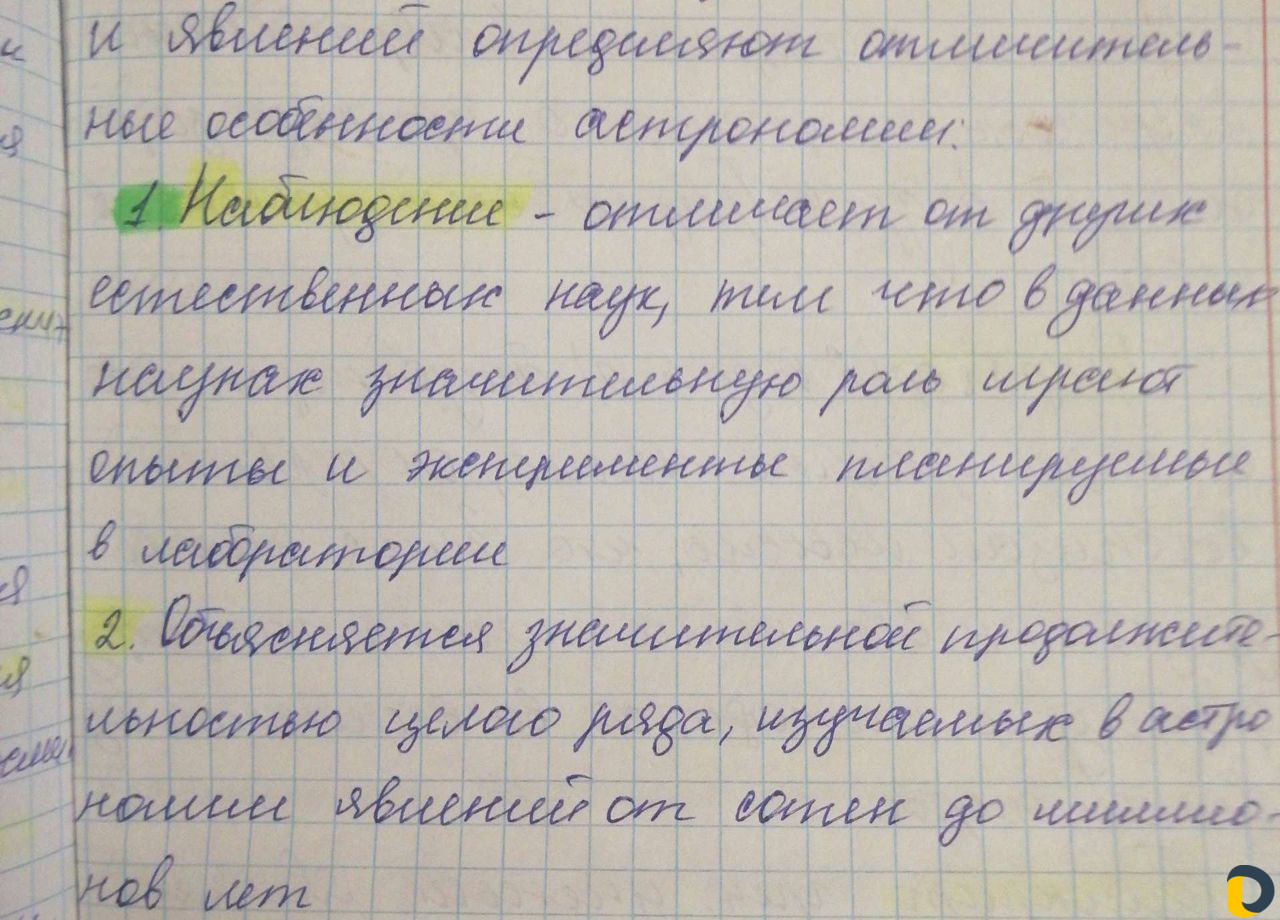 и явлений определяют отличитель-
ные особенности астрономии:
1. Наблюдение - отличает от других
естественных наук, тем что в данных
науках значительную роль играют
опыты и эксперименты планируемые
в лаборатории
2. Объясняется значительной продолжите-
льностью целого ряда, изучаемых в астро
номии явлений от сотен до миллио-
нов лет